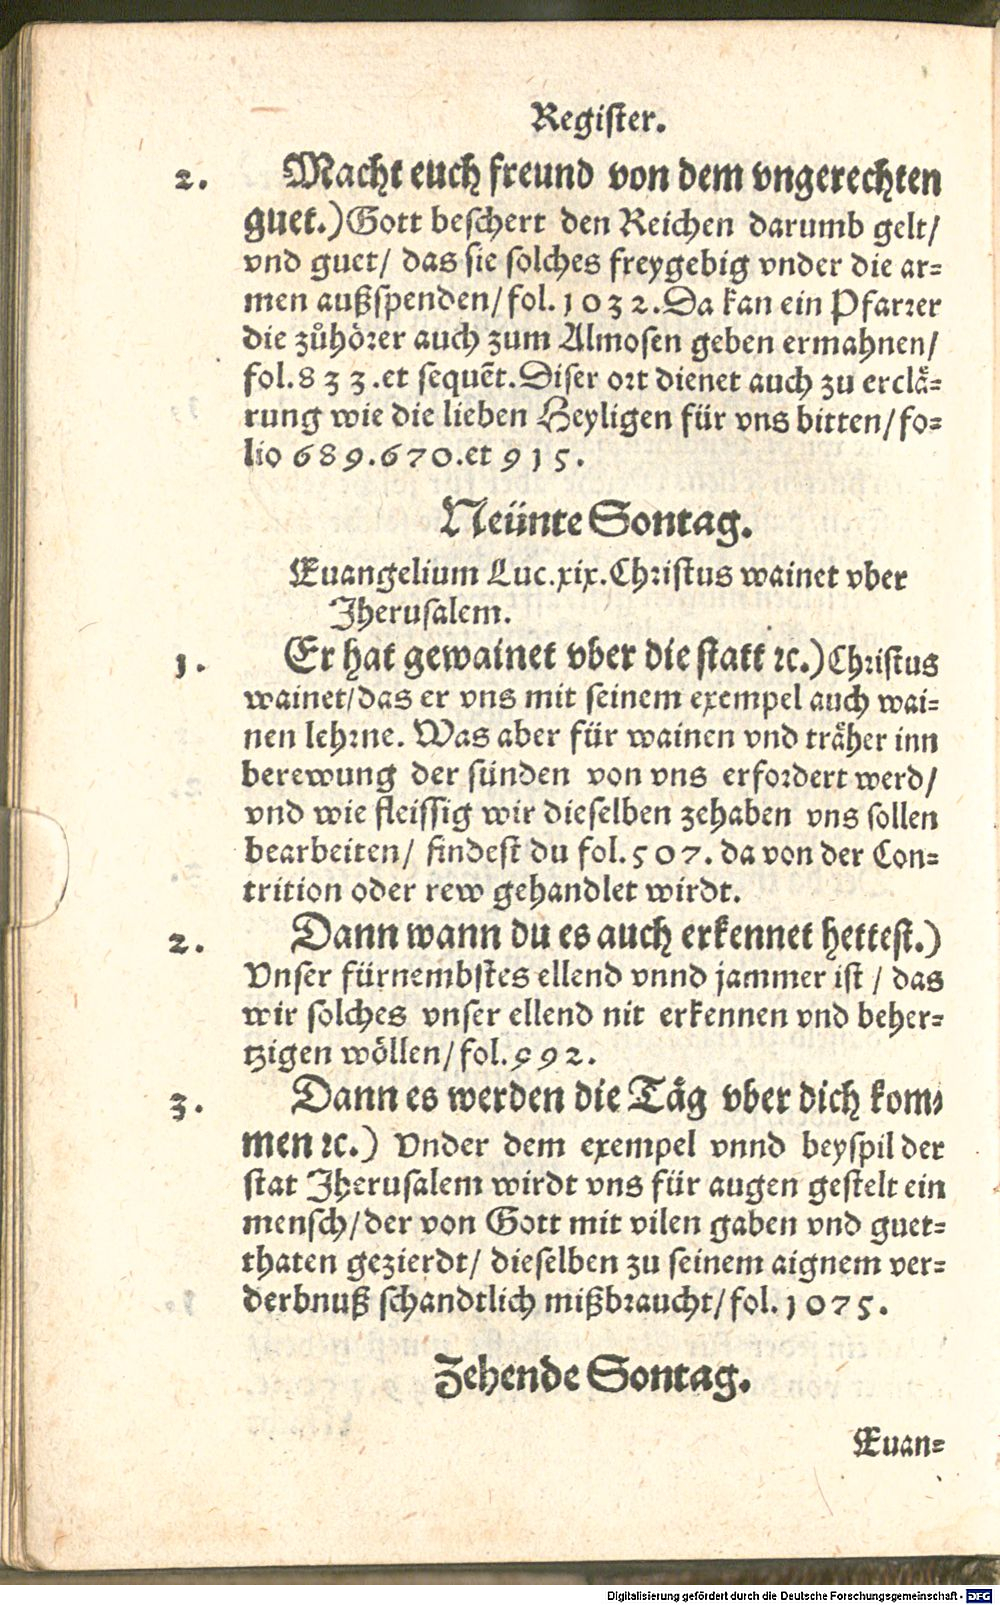 Register.
2. Macht euch freund von dem vngerechten
guet.) Gott beschert den Reichen darumb gelt/
vnd guet/ das sie solches freygebig vnder die ar=
men außspenden/ fol. 1032. Da kan ein Pfarrer
die zůhörer auch zum Almosen geben ermahnen/
fol. 833. et sequẽt. Diser ort dienet auch zu erclä=
rung wie die lieben Heyligen für vns bitten/ fo=
lio 689. 670. et 915.
Neünte Sontag.
Euangelium Luc. xix. Christus wainet vber
Jherusalem.
1. Er hat gewainet vber die statt ꝛc.) Christus
wainet/ das er vns mit seinem exempel auch wai=
nen lehrne. Was aber für wainen vnd träher inn
berewung der sünden von vns erfordert werd/
vnd wie fleissig wir dieselben zehaben vns sollen
bearbeiten/ findest du fol. 507. da von der Con=
trition oder rew gehandlet wirdt.
2. Dann wann du es auch erkennet hettest.)
Vnser fürnembstes ellend vnnd jammer ist / das
wir solches vnser ellend nit erkennen vnd beher=
tzigen wöllen/ fol. 992.
3. Dann es werden die Täg vber dich kom=
men ꝛc.) Vnder dem exempel vnnd beyspil der
stat Jherusalem wirdt vns für augen gestelt ein
mensch/ der von Gott mit vilen gaben vnd guet=
thaten gezierdt/ dieselben zu seinem aignem ver=
derbnuß schandtlich mißbraucht/ fol. 1075.
Zehende Sontag.
Euan=
Digitalisierung gefördert durch die Deutsche Forschungsgemeinschaft - DFG